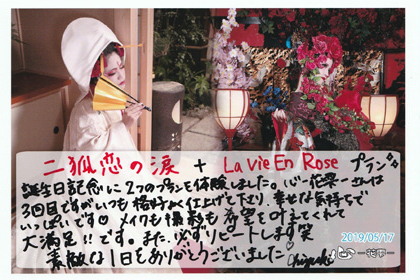 二狐恋の涙 + La Vie En Rose プラン
誕生日記念に2つのプランを体験しました。心-花雫-さんは
3回目ですがいつも格好よく仕上げて下さり、幸せな気持ちで
いっぱいです♡ メイクも撮影も希望を叶えてくれて
大満足!!です。また、必ずリピートします笑
素敵な1日をありがとうございました♡
2019/05/17